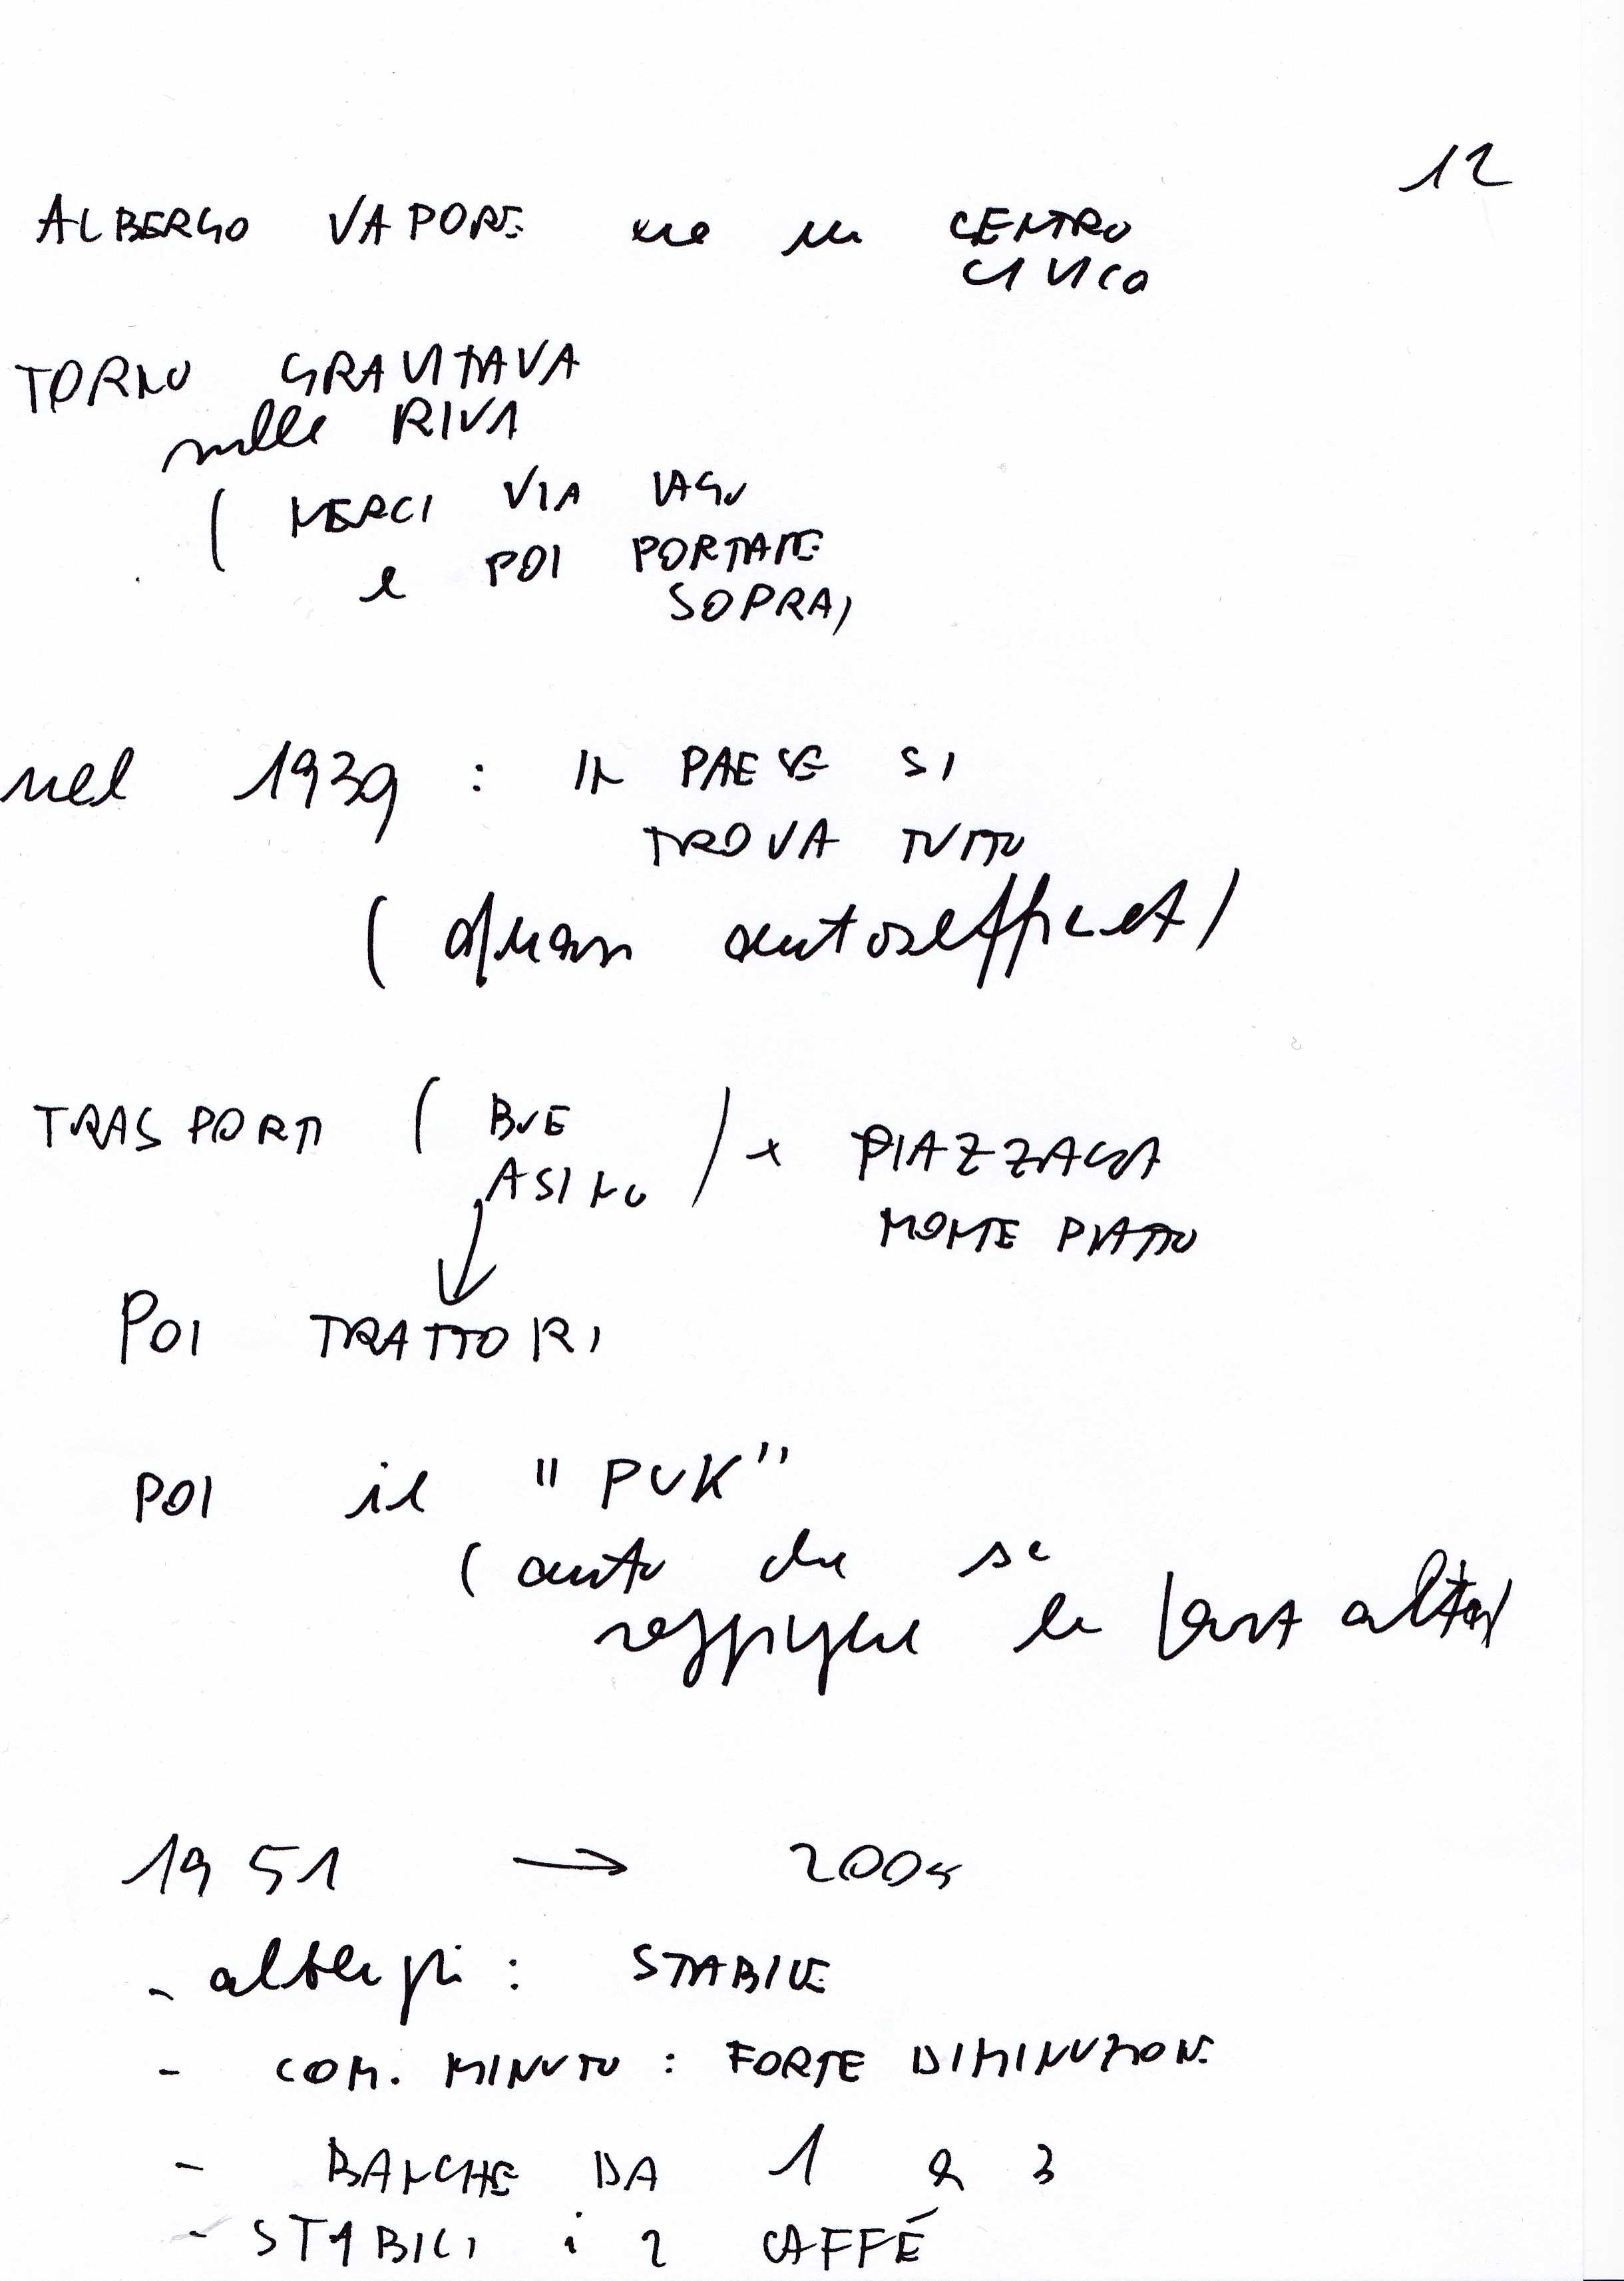 12
ALBERGO VAPORE era un CENTRO
CIVICO
TORNO GRAVITAVA
sulla RIVA
( MERCI VIA LAGO
e POI PORTATE
SOPRA)
nel 1939 : IN PAESE SI
TROVA TUTTO
( quasi autosufficient)
TRASPORTI ( BUE
ASINO ) x PIAZZAGA
MONTE PIATTO
POI TRATTORI
POI il "PUK"
( auto che si
le parti alte)
1951 → 2005
- alberghi : STABILE
- COM. MINUTO : FORTE DIMINUZIONE
- BANCHE DA 1 a 3
- STABILI i 2 CAFFÉ